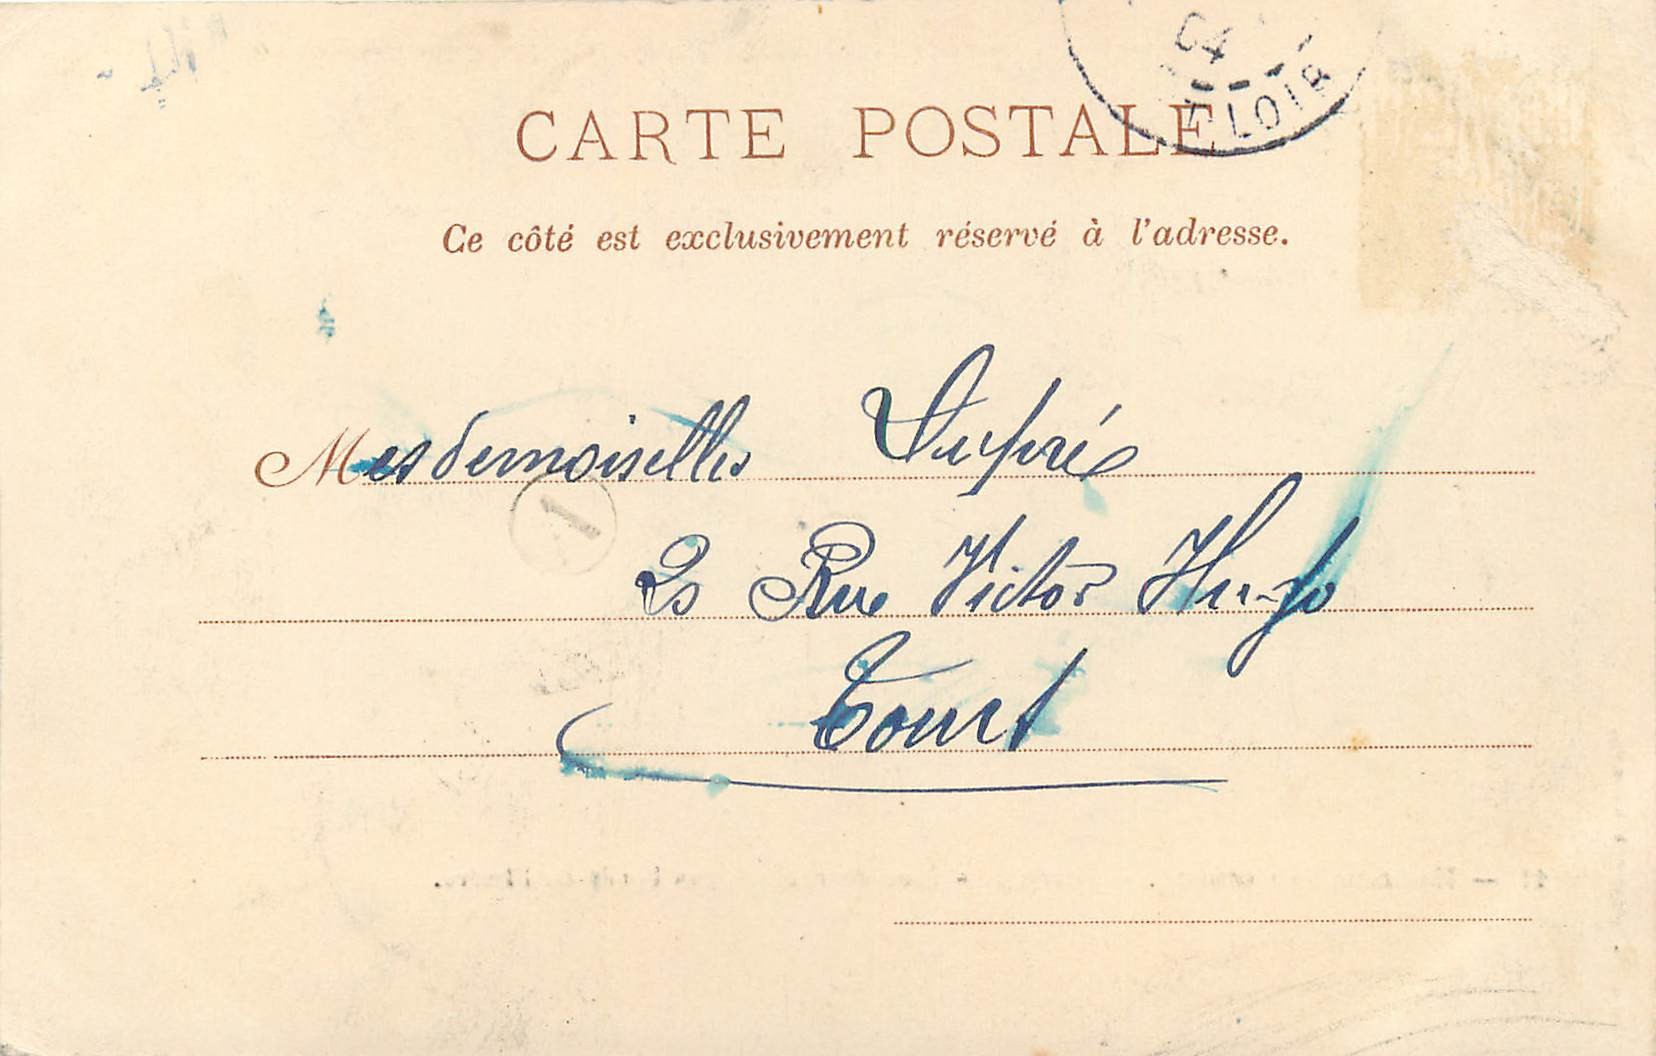 04
LOIR
CARTE POSTALE
Ce côté est exclusivement réservé à l'adresse.
Mesdemoiselles Dupré
1
Rue Victor Hugo
Tours